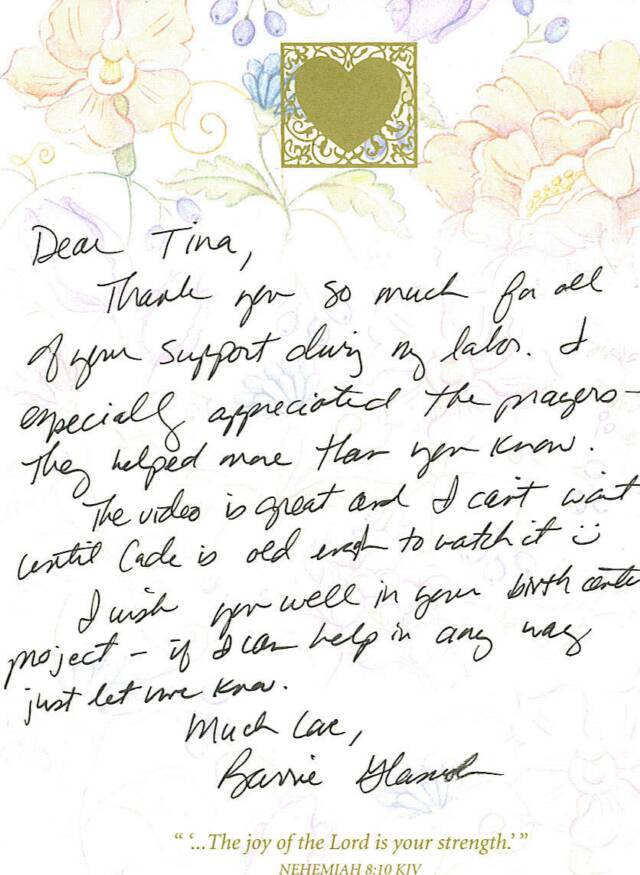 Dear Tina,
Thank you so much for all
of your support during my labor. I
especially appreciated the prayers -
They helped more than you know.
The video is great and I can't wait
until Cade is old enough to watch it
I wish you well in your birth center
project - if I can help in any way
just let me know.
Much Love,
Barrie
“ ‘...The joy of the Lord is your strength.’ ”
NEHEMIAH 8:10 KJV